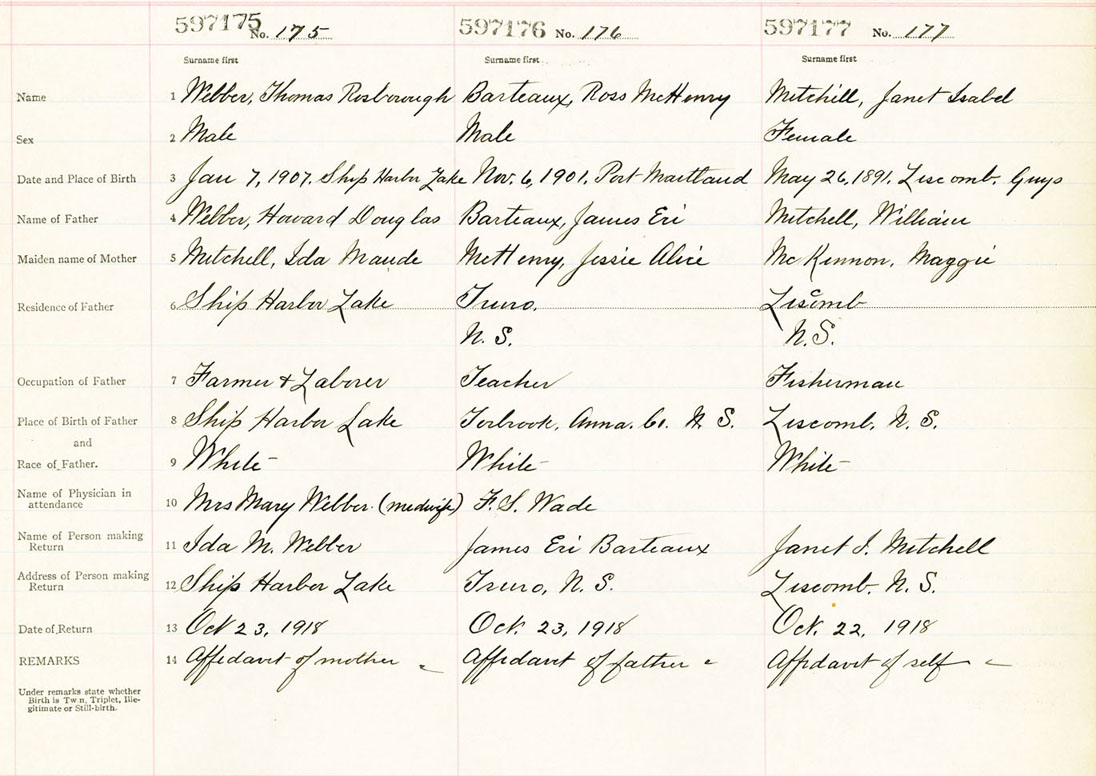 597175 No. 175 597176 No. 176 597177 No. 177
Surname first Surname first Surname first
Name 1 Webber, Thomas Rosborough Barteaux, Ross McHenry Mitchell, Janet Isabel
Sex 2 Male Male Female
Date and Place of Birth 3 Jan 7, 1907, Ship Harbor Lake Nov. 6, 1901, Port Maitland May 26, 1891, Liscomb, Guys
Name of Father 4 Webber, Howard Douglas Barteaux, James Eri Mitchell, William
Maiden name of Mother 5 Mitchell, Ida Maude McHenry, Jessie Alice McKennon, Maggie
Residence of Father 6 Ship Harbor Lake Truro, Liscomb
N. S. N. S.
Occupation of Father 7 Farmer & Laborer Teacher Fisherman
Place of Birth of Father 8 Ship Harbor Lake Torbrook, Anna. Co. N. S. Liscomb, N. S.
and
Race of Father. 9 White White White
Name of Physician in
attendance 10 Mrs Mary Webber (medwife) F. S. Wade
Name of Person making
Return 11 Ida M. Webber James Eri Barteaux Janet I. Mitchell
Address of Person making
Return 12 Ship Harbor Lake Truro, N. S. Liscomb, N. S.
Date of Return 13 Oct 23, 1918 Oct. 23, 1918 Oct. 22, 1918
REMARKS 14 Affidavit of mother Affidavit of father Affidavit of self
Under remarks state whether
Birth is Twin, Triplet, Ille-
gitimate or Still-birth.